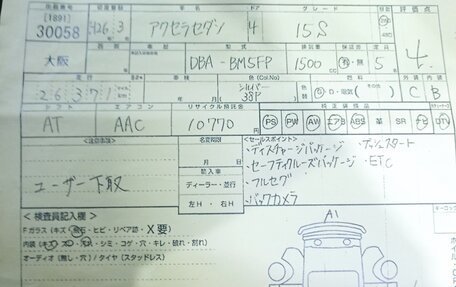 [1891] H26 3 アクセラセダン 4 グレード 15S
30058
大阪 型式 DBA-BM5FP 1500 5 4
走行 車検 色(Col.No) 外装 内装
26371 年 月 シルバー 38P C B
シフト エアコン リサイクル預託金
AT AAC 10770 PS PW AW エアB ABS 革 SR ナビ DTV
注意事項 名変期限 <セールスポイント>
・ディスチャージパッケージ ・プッシュスタート
月 日 ・セーフティクルーズパッケージ ・ETC
輸入車 ・フルセグ
ユーザー下取 ディーラー・並行 ・バックカメラ
左H ・ 右H
<検査員記入欄> A1
Fガラス(キズ・飛石・ヒビ・リペア跡・X要)
内装(キズ・スレ・汚れ・シミ・コゲ・穴・キレ・破れ・割れ)
オーディオ(無し・穴)/タイヤ(スタッドレス)